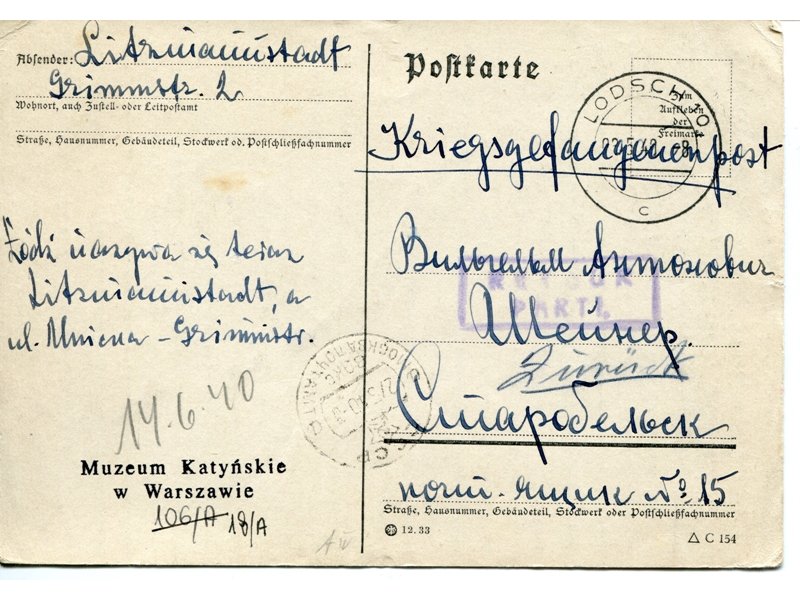 Absender: Litzmannstadt
Grimmstr. 2
Wohnort, auch Zustell- oder Leitpostamt
Straße, Hausnummer, Gebäudeteil, Stockwerk od. Postschließfachnummer
Łódź nazywa się teraz
Litzmannstadt, a
ul. - Grimmstr.
14.6.40
Muzeum Katyńskie
w Warszawie
106/A 18/A
Postkarte
LODSCH
c
Zum
Aufkleben
der
Freimarke
Kriegsgefangenenpost
Вильгельм Антонович
RETOUR
PARTI.
Шейнер.
Zurück
Старобельск
почт. ящик № 15
Straße, Hausnummer, Gebäudeteil, Stockwerk oder Postschließfachnummer
12.33
C 154